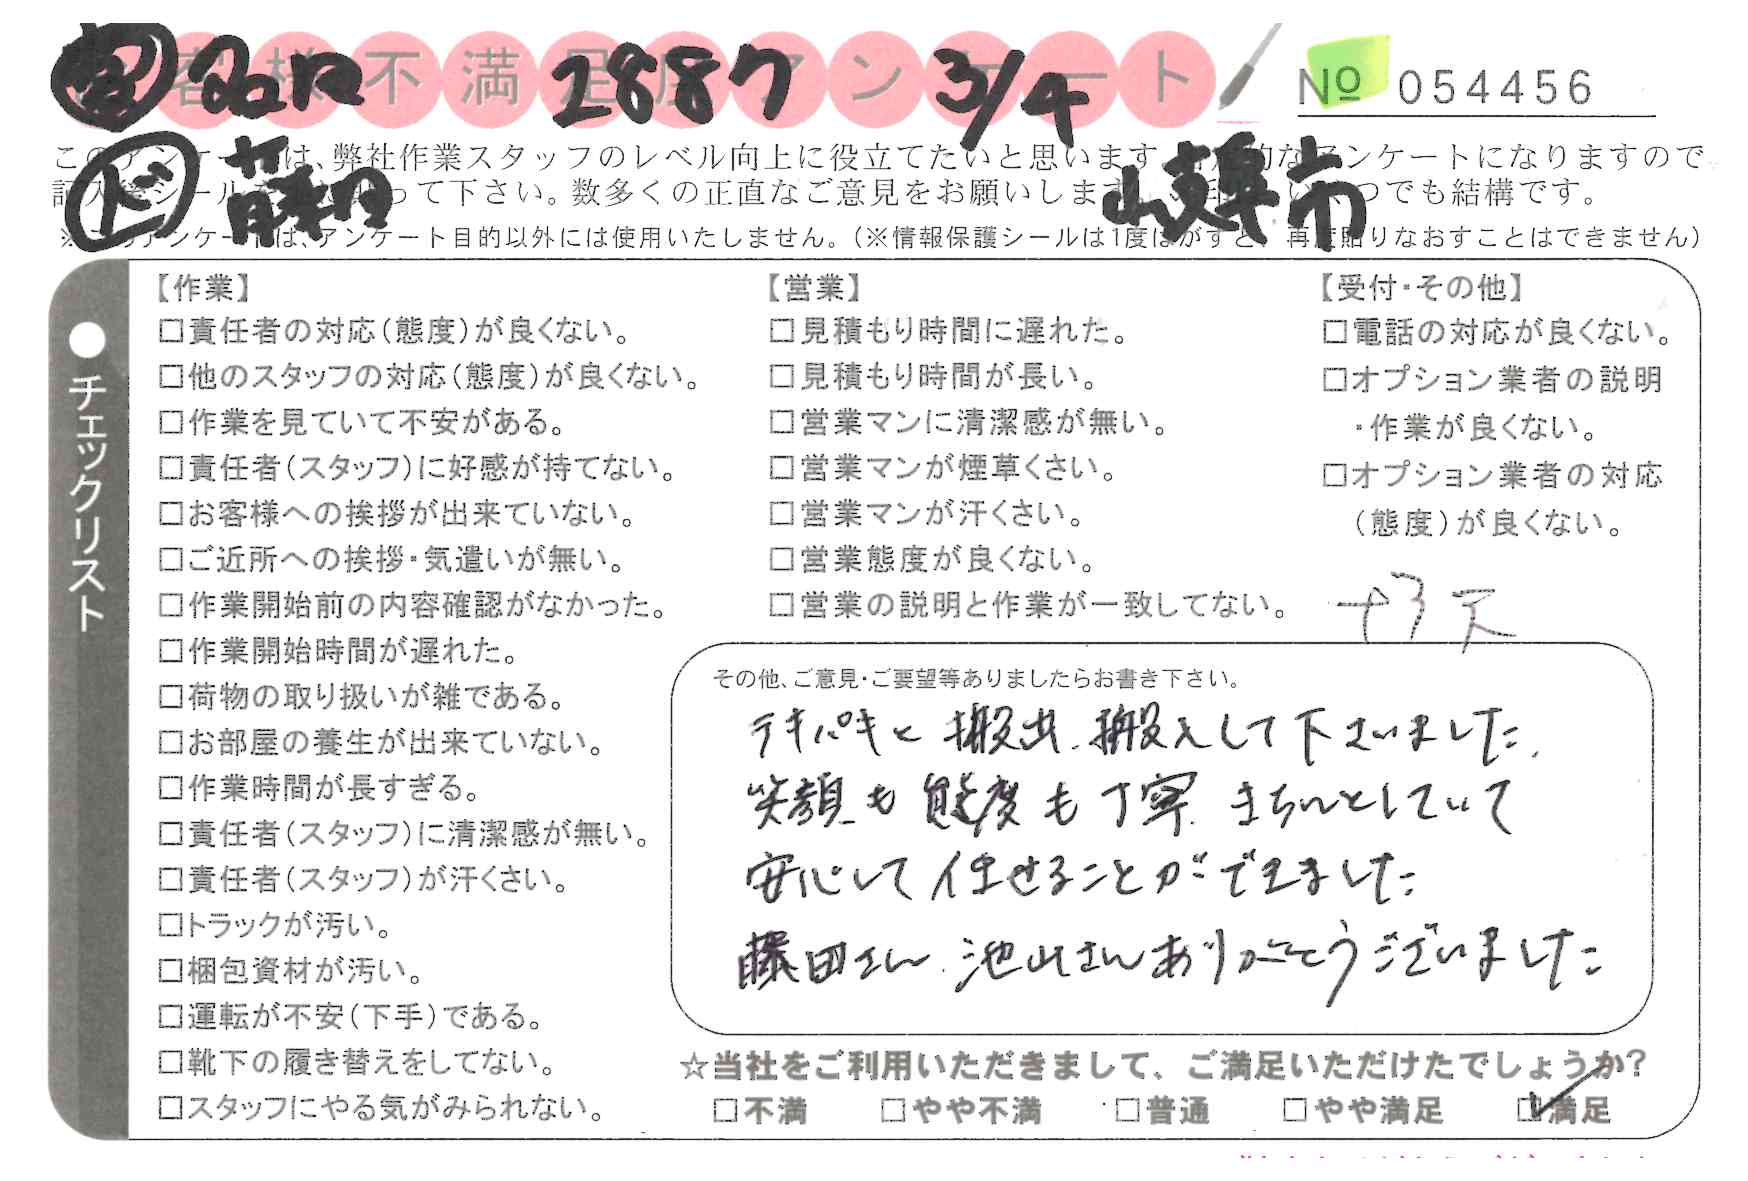 お客様不満足度アンケート
2887 3/4
№ 054456
このアンケートは、弊社作業スタッフのレベル向上に役立てたいと思います
なアンケートになりますので
って下さい。数多くの正直なご意見をお願いします
つでも結構です。
岐阜市
※このアンケートは、アンケート目的以外には使用いたしません。(※情報保護シールは1度はがすと、再度貼りなおすことはできません)
●チェックリスト
【作業】
□責任者の対応(態度)が良くない。
□他のスタッフの対応(態度)が良くない。
□作業を見ていて不安がある。
□責任者(スタッフ)に好感が持てない。
□お客様への挨拶が出来ていない。
□ご近所への挨拶・気遣いが無い。
□作業開始前の内容確認がなかった。
□作業開始時間が遅れた。
□荷物の取り扱いが雑である。
□お部屋の養生が出来ていない。
□作業時間が長すぎる。
□責任者(スタッフ)に清潔感が無い。
□責任者(スタッフ)が汗くさい。
□トラックが汚い。
□梱包資材が汚い。
□運転が不安(下手)である。
□靴下の履き替えをしてない。
□スタッフにやる気がみられない。
【営業】
□見積もり時間に遅れた。
□見積もり時間が長い。
□営業マンに清潔感が無い。
□営業マンが煙草くさい。
□営業マンが汗くさい。
□営業態度が良くない。
□営業の説明と作業が一致してない。
【受付・その他】
□電話の対応が良くない。
□オプション業者の説明
・作業が良くない。
□オプション業者の対応
(態度)が良くない。
その他、ご意見・ご要望等ありましたらお書き下さい。
テキパキと搬出、搬入して下さいました。
笑顔も態度も丁寧、きちんとしていて
安心して任せることができました
藤田さん、池山さんありがとうございました
☆当社をご利用いただきまして、ご満足いただけたでしょうか?
□不満 □やや不満 □普通 □やや満足 ☑満足